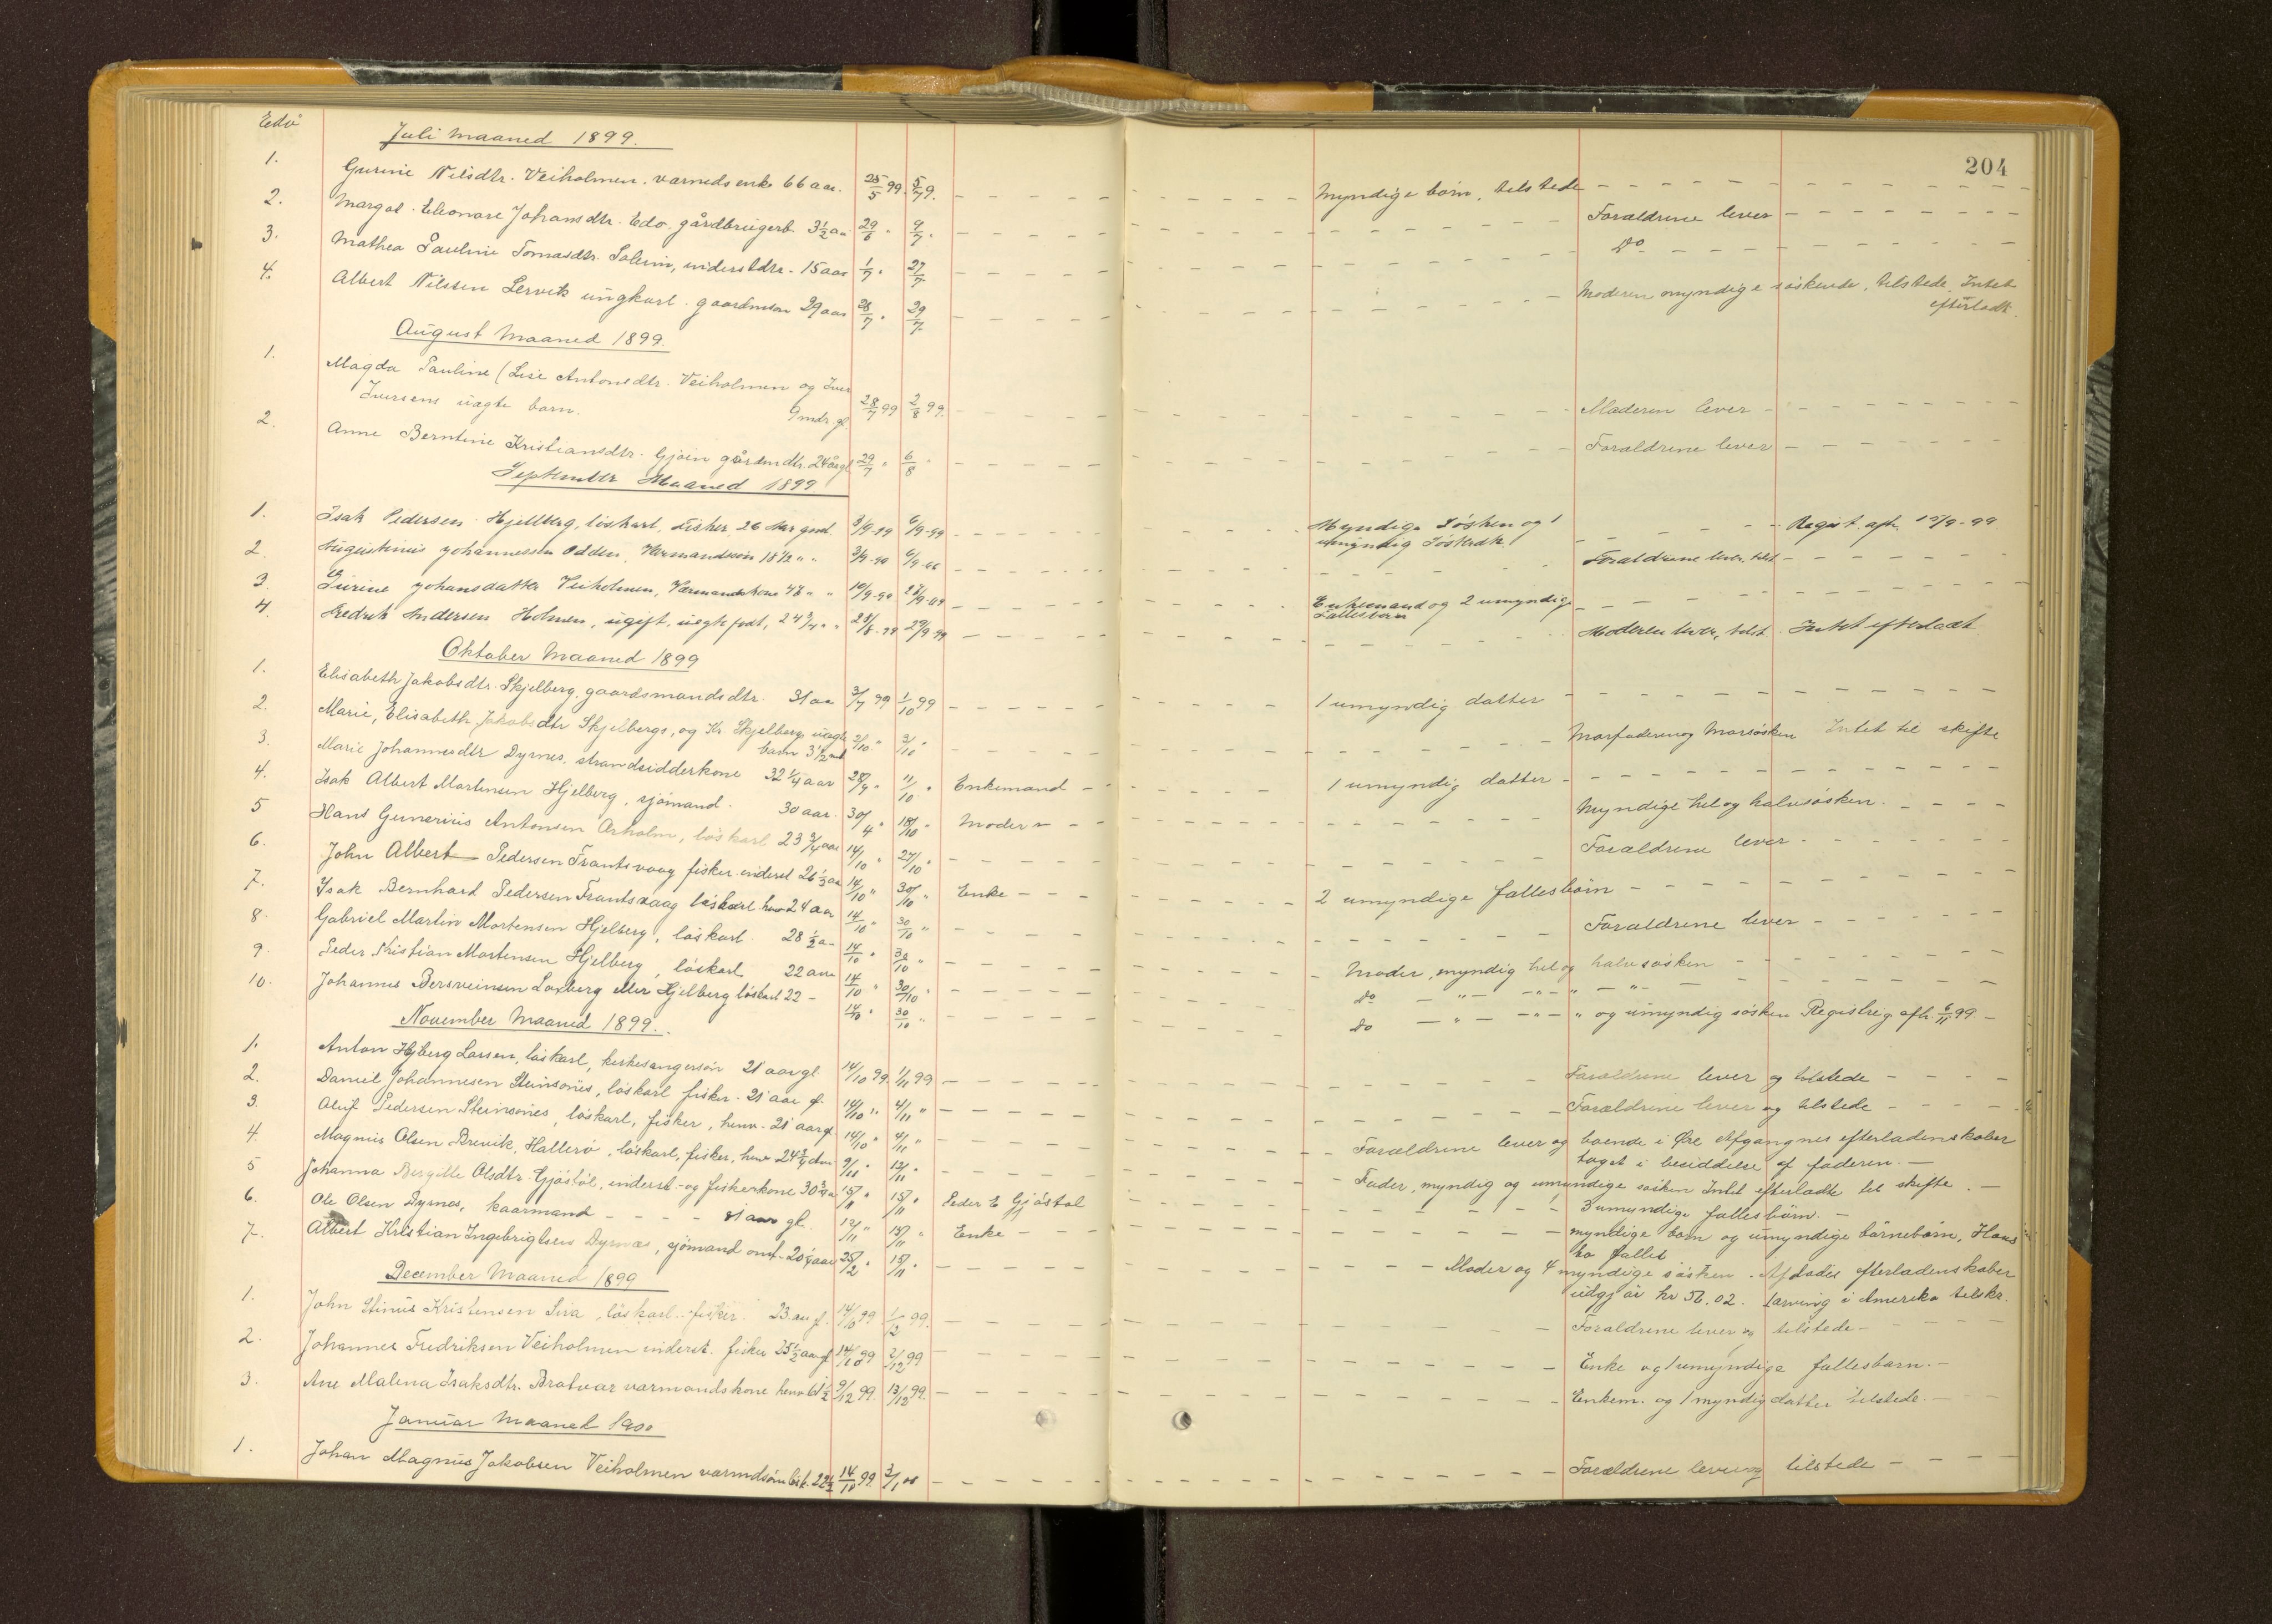 Edø
204
Juli Maaned 1899.
1. Gurine Nilsdtr. Veiholmen. varmds enke 66 aar. 25/5 99. 5/7 9. Myndige børn, tilstede
2. Margot Eleonore Johansdtr. Edø. gårdbrugerb. 3½ aar 29/6 " 9/7 " Forældrene lever
3. Mathea Pauline Tomasdtr. Solem, inderstdtr. 15 aar 1/7 " 27/7 Do
4. Albert Nilsen Lervik ungkarl. gaardmsøn 29 aar 28/7 " 29/7 Moderen myndige søskende, tilstede. Intet
efterladt.
August Maaned 1899.
1. Magda Pauline (Lise Antonsdtr. Veiholmen og Iver
Iversens uægte barn. 9 mdr. gl. 28/7 99 2/8 99. Moderen lever
2. Anne Berntine Kristiansdtr. Gjøen gårdmdtr. 24 år gl 29/7 " 6/8 " Forældrene lever
September Maaned 1899.
1. Isak Pedersen Hjellberg, løskarl, fisker, 26 Aar gml. 3/9-99 6/9-99 Myndige Søsken og 1 Regist. afh. 15/9-99
umyndig
2. Augustinus Johannessen Odden, Varmandssøn 18½ " " 3/9-99 6/9-99 Forældrene lever, tilst
3. Johansdatter Veiholmen, Varmandskone 10/9-99 Enkemand og 2 umyndige
Fællesbørn
4. Fredrik Andersen Holmen, ugift, uægte født, 24¾ " " 29/9-99 Moderen lever, tilst. Intet efterladt
Oktober Maaned 1899
1. Elisabeth Jakobsdtr. Skjelberg. gaardsmandsdtr. 31 aar 3/7 99 1/10 99 1 umyndig datter
2. Marie, Elisabeth Jakobsdtr Skjelbergs, og Kr. Skjelbergs uægte 2/10 " 3/10 " Morfaderen og Morsøsken Intet til skifte
barn 3½
3. Marie Johannesdtr Dyrnes, strandsidderkone 32¼ aar 11/10 " Enkemand 1 umyndig datter
4. Isak Albert Mortensen Hjelberg, sjømand. 30 aar. 30/4 " 18/10 " Moder Myndige hel og halvsøsken.
5 Hans Gunerius Antonsen Orholm, løskarl 23¾ aar 14/10 " 27/10 " Forældrene lever
6. John Albert Pedersen Frantsvaag fisker inderst 26½ aar 14/10 " 30/10 " Enke 2 umyndige fællesbørn
7. Isak Bernhard Pedersen Frantsvaag løskarl 24 aar 14/10 " 30/10 " Forældrene lever
8. Gabriel Martin Mortensen Hjelberg, løskarl. 28½ a 14/10 " 30/10 " Moder, myndig hel og halvsøsken
9. Peder Kristian Mortensen Hjelberg, løskarl 22 aar 14/10 " 30/10 " do — " — " — " —
10. Johannes Bersveinsen Loxberg eller Hjelberg løskarl 22 — 14/10 " 30/10 " do — " — " — " og umyndig søsken Registreg. afh. 6/11 99
November Maaned 1899.
1. Anton Hjberg Larsen, løskarl, kirkesangersøn 21 aar gl 14/10 99. 1/11 99 Forældrene lever og tilstede
2. Daniel Johannesen Steinsønes, løskarl fisker. 21 aar gl. 14/10 " 4/11 " Forældrene lever og tilstede
3. Oluf Pedersen Steinsønes, løskarl, fisker, henv. 21 aar gl 14/10 " 4/11 " Forældrene lever og boende i Øre Afgangnes efterladenskaber
taget i besiddelse af faderen. —
4. Magnus Olsen Brevik, Hallerø, løskarl, fisker, henv 24¾ aar 9/11 " 12/11 " Fader, myndig og umyndige søsken Intet efterladte til skifte. —
5 Johanna Bergitte Olsdtr. Gjøstøl, inderst- og fiskerkone 30¾ aar 15/11 " Peder E Gjøstøl 3 umyndige fællesbørn. —
6. Ole Olsen Dyrnes, kaarmand 81 aar gl. 12/11 " 15/11 " Enke myndige børn og umyndige børnebørn, Hans
bo fallet
7. Albert Kristian Ingebrigtsen Dyrnæs, sjømand omk. 20¼ aar 25/2 " 15/11 " Moder og 4 myndige søsken. Afdødes efterladenskaber
udgjør kr 56.02. 1 arving i Amerika tilskr.
December Maaned 1899
1. John Stinus Kristensen Sira, løskarl. fisker 23 aar gl. 14/10 99 1/12 99. Forældrene lever og tilstede
2. Johannes Fredriksen Veiholmen inderst. fisker 35½ aar gl 14/10 99 2/12 99 Enke og 1 umyndige fællesbarn. —
3. Ane Malena Isaksdtr. Bratvær varmandskone henv 61½ 9/12 99. 13/12 99. Enkem. og 1 myndig datter tilstede. —
Januar Maaned 1900
1. Johan Magnus Jakobsen Veiholmen varmdsøn løsk. 22½ 14/10 99. 3/1 00 Forældrene lever og tilstede